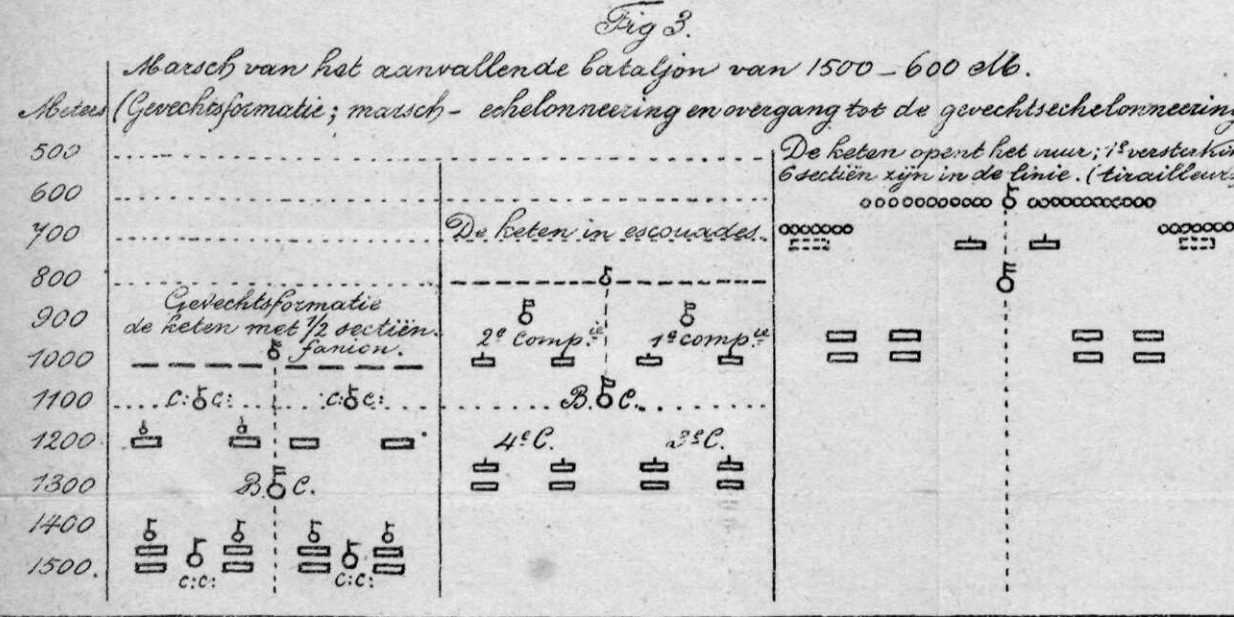 Fig 3.
Marsch van het aanvallende bataljon van 1500 – 600 M.
Meters (Gevechtsformatie; marsch - echelonneering en overgang tot de gevechtsechelonneering
500
600
700
800
900
1000
1100
1200
1300
1400
1500.
Gevechtsformatie
de keten met 1/2 sectiën.
fanion.
C: C:
C: C:
B. C.
C:C:
C:C:
De keten in escouades.
2e Comp.ie
1e Comp.ie
B. C.
4e C.
3e C.
De keten opent het vuur; 1e versterkin
6 sectiën zijn in de linie. (tirailleurs